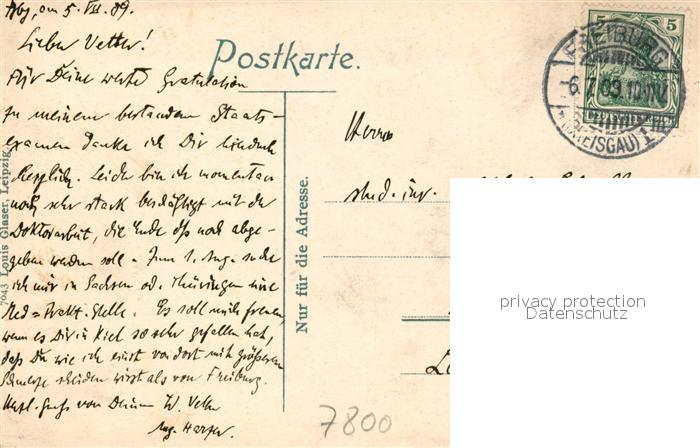 Fbg, am 5. VII. 09.
Lieber Vetter!
Für Deine werte Gratulation
zu meinem bestandenen Staats-
examen danke ich Dir hiedurch
herzlich. Leider bin ich momentan
noch sehr stark beschäftigt mit der
Doktorarbeit, die Ende ds noch abge-
geben werden soll. Zum 1. Aug. suche
ich mir in Sachsen od. Thüringen eine
Med. Prakt. Stelle. Es soll mich freuen,
wenn es Dir in Kiel so sehr gefallen hat,
daß Du wie ich einst von dort mit größeren
Schmerzen scheiden wirst als von Freiburg.
Herzl. Gruß von Deinem Vetter
Postkarte.
7043 Louis Glaser, Leipzig.
Nur für die Adresse.
Herrn
stud. jur.
5
FREIBURG
6.7.09.
(BREISGAU) 1
privacy protection
Datenschutz
7800